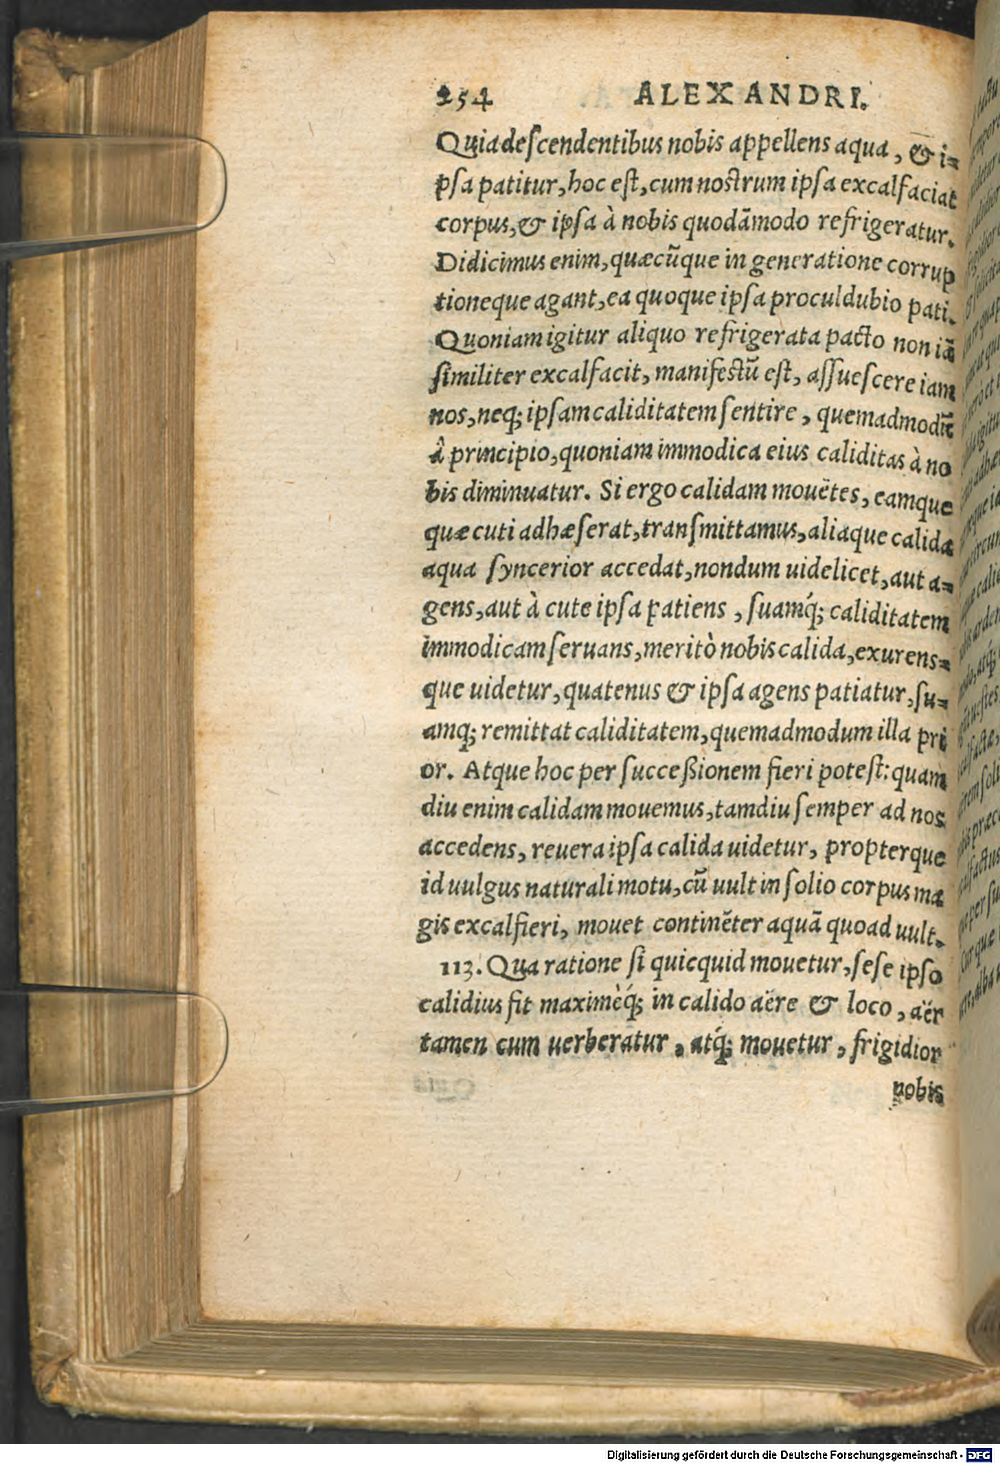 254 ALEXANDRI.
Quia descendentibus nobis appellens aqua, & i=
psa patitur, hoc est, cum nostrum ipsa excalfaciat
corpus, & ipsa à nobis quodāmodo refrigeratur.
Didicimus enim, quæcūque in generatione corrup
tioneque agant, ea quoque ipsa proculdubio pati.
Quoniam igitur aliquo refrigerata pacto non iā
similiter excalfacit, manifestū est, assuescere iam
nos, neq; ipsam caliditatem sentire, quemadmodū
à principio, quoniam immodica eius caliditas à no
bis diminuatur. Si ergo calidam mouētes, eamque
quæ cuti adhæserat, transmittamus, aliaque calida
aqua syncerior accedat, nondum uidelicet, aut a=
gens, aut à cute ipsa patiens, suamq́; caliditatem
immodicam seruans, meritò nobis calida, exurens=
que uidetur, quatenus & ipsa agens patiatur, su=
amq; remittat caliditatem, quemadmodum illa pri
or. Atque hoc per successionem fieri potest: quam
diu enim calidam mouemus, tamdiu semper ad nos
accedens, reuera ipsa calida uidetur, propterque
id uulgus naturali motu, cū uult in solio corpus ma
gis excalfieri, mouet continēter aquā quoad uult.
113. Qua ratione si quicquid mouetur, sese ipso
calidius fit maximèq́; in calido aëre & loco, aër
tamen cum uerberatur, atq́; mouetur, frigidior
nobis
Digitalisierung gefördert durch die Deutsche Forschungsgemeinschaft - DFG